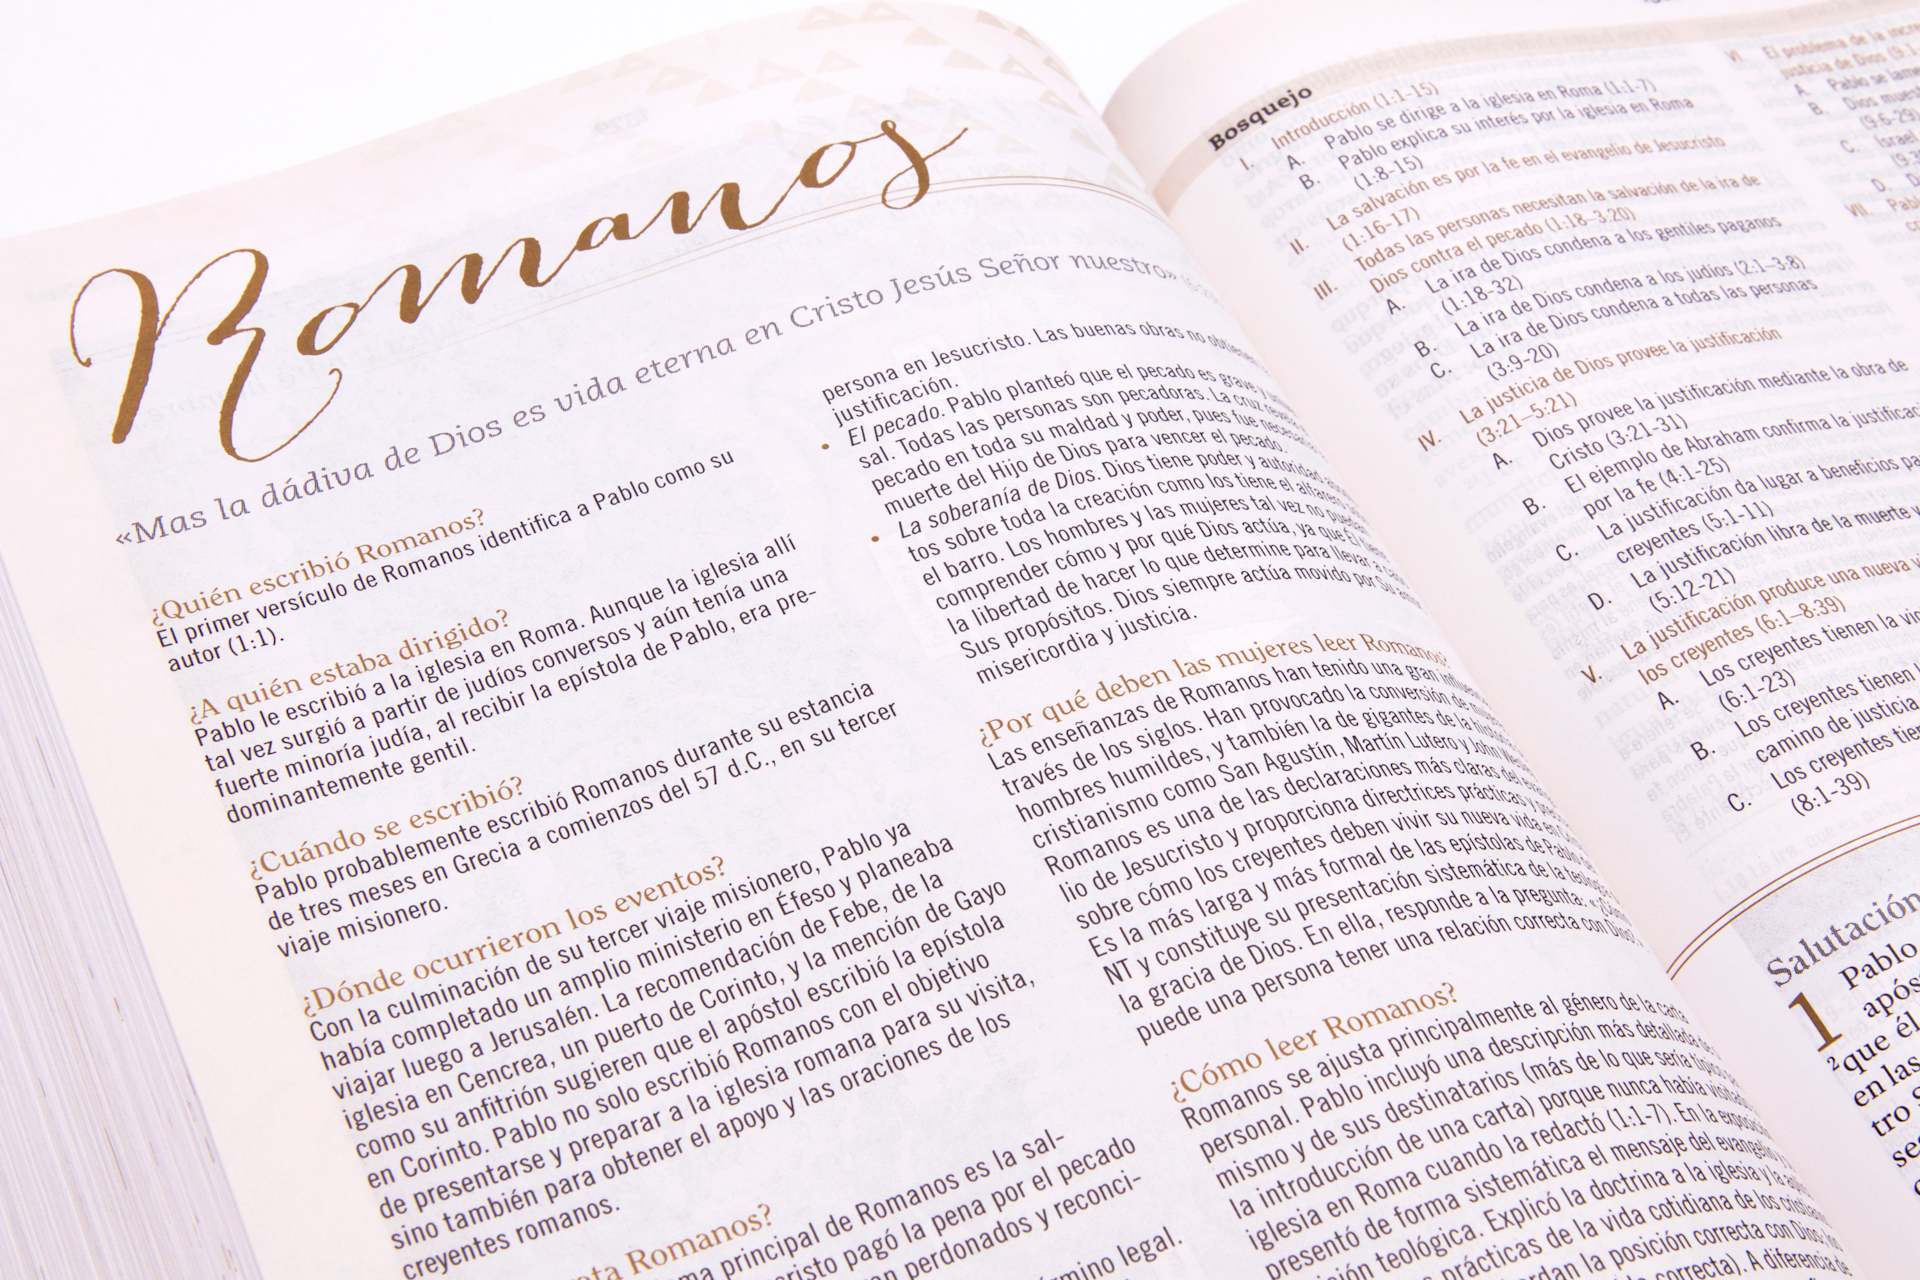 Romanos
«Mas la dádiva de Dios es vida eterna en Cristo Jesús Señor nuestro»
¿Quién escribió Romanos?
El primer versículo de Romanos identifica a Pablo como su
autor (1:1).
¿A quién estaba dirigido?
Pablo le escribió a la iglesia en Roma. Aunque la iglesia allí
tal vez surgió a partir de judíos conversos y aún tenía una
fuerte minoría judía, al recibir la epístola de Pablo, era pre-
dominantemente gentil.
¿Cuándo se escribió?
Pablo probablemente escribió Romanos durante su estancia
de tres meses en Grecia a comienzos del 57 d.C., en su tercer
viaje misionero.
¿Dónde ocurrieron los eventos?
Con la culminación de su tercer viaje misionero, Pablo ya
había completado un amplio ministerio en Éfeso y planeaba
viajar luego a Jerusalén. La recomendación de Febe, de la
iglesia en Cencrea, un puerto de Corinto, y la mención de Gayo
como su anfitrión sugieren que el apóstol escribió la epístola
en Corinto. Pablo no solo escribió Romanos con el objetivo
de presentarse y preparar a la iglesia romana para su visita,
sino también para obtener el apoyo y las oraciones de los
creyentes romanos.
Romanos?
principal de Romanos es la sal-
pagó la pena por el pecado
perdonados y reconci-
legal.
persona en Jesucristo. Las buenas obras no
justificación.
• El pecado. Pablo planteó que el pecado es grave y
sal. Todas las personas son pecadoras. La cruz
pecado en toda su maldad y poder, pues fue
muerte del Hijo de Dios para vencer el pecado.
• La soberanía de Dios. Dios tiene poder y autoridad
tos sobre toda la creación como los tiene el
el barro. Los hombres y las mujeres tal vez no
comprender cómo y por qué Dios actúa, ya que Él
la libertad de hacer lo que determine para llevar a
Sus propósitos. Dios siempre actúa movido por Su
misericordia y justicia.
¿Por qué deben las mujeres leer Romanos?
Las enseñanzas de Romanos han tenido una gran
través de los siglos. Han provocado la conversión de
hombres humildes, y también la de gigantes de la
cristianismo como San Agustín, Martín Lutero y John
Romanos es una de las declaraciones más claras del
lio de Jesucristo y proporciona directrices prácticas y
sobre cómo los creyentes deben vivir su nueva vida en
Es la más larga y más formal de las epístolas de Pablo
NT y constituye su presentación sistemática de la
la gracia de Dios. En ella, responde a la pregunta:
puede una persona tener una relación correcta con
¿Cómo leer Romanos?
Romanos se ajusta principalmente al género de la carta
personal. Pablo incluyó una descripción más detallada de
mismo y de sus destinatarios (más de lo que sería
la introducción de una carta) porque nunca había
iglesia en Roma cuando la redactó (1:1-7). En la
presentó de forma sistemática el mensaje del
teológica. Explicó la doctrina a la iglesia y
prácticas de la vida cotidiana de los
la posición correcta con Dios
correcta). A diferencia de
Bosquejo
I. Introducción (1:1-15)
A. Pablo se dirige a la iglesia en Roma (1:1-7)
B. Pablo explica su interés por la iglesia en Roma
(1:8-15)
II. La salvación es por la fe en el evangelio de Jesucristo
(1:16-17)
III. Todas las personas necesitan la salvación de la ira de
Dios contra el pecado (1:18–3:20)
A. La ira de Dios condena a los gentiles paganos
(1:18-32)
B. La ira de Dios condena a los judíos (2:1–3:8)
C. La ira de Dios condena a todas las personas
(3:9-20)
IV. La justicia de Dios provee la justificación
(3:21–5:21)
A. Dios provee la justificación mediante la obra de
Cristo (3:21-31)
B. El ejemplo de Abraham confirma la
por la fe (4:1-25)
C. La justificación da lugar a beneficios
creyentes (5:1-11)
D. La justificación libra de la muerte y
(5:12-21)
V. La justificación produce una nueva
los creyentes (6:1–8:39)
A. Los creyentes tienen la
(6:1-23)
B. Los creyentes tienen
camino de justicia
C. Los creyentes
(8:1-39)
VI. El problema de la
justicia de Dios
A. Pablo se
B. Dios
(9:6-29)
C. Israel
D.
VII.
Salutación
1 Pablo
2 que él
en las